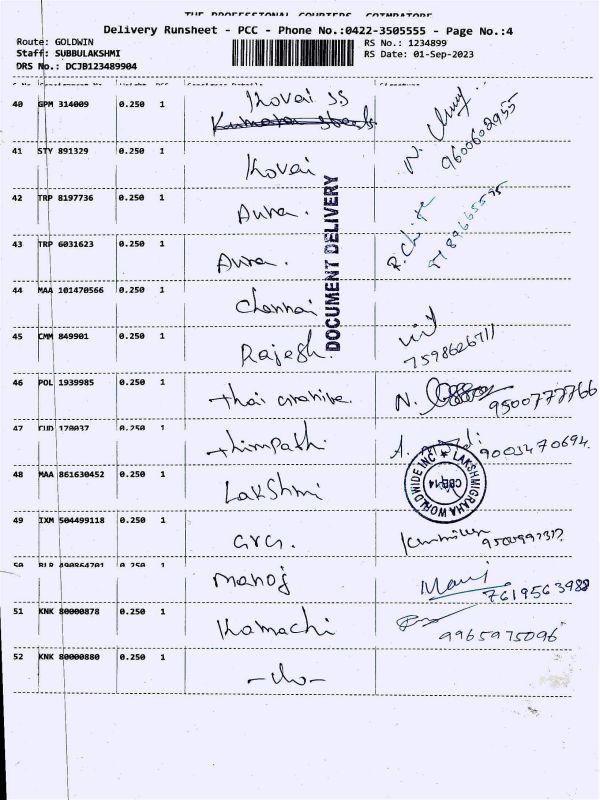 THE PROFESSIONAL COURIERS, COIMBATORE
Delivery Runsheet - PCC - Phone No.:0422-3505555 - Page No.:4
Route: GOLDWIN
RS No.: 1234899
Staff: SUBBULAKSHMI
RS Date: 01-Sep-2023
DRS No.: DCJB123489904
40 GPM 314009 0.250 1 Kovai SS
9600602955
41 STY 891329 0.250 1 Kovai
42 TRP 8197736 0.250 1 Aura.
43 TRP 6031623 0.250 1 Aura.
DOCUMENT DELIVERY
44 MAA 101470566 0.250 1 Chennai
45 CMM 849901 0.250 1 Rajesh.
7598626711
46 POL 1939985 0.250 1 thai
N. 9500777766
47 CUD 170037 0.250 1
A. 9003470694
48 MAA 861630452 0.250 1 Lakshmi
LAKSHMIGRAHA WORLDWIDE INC
CBE-14
49 IXM 504499118 0.250 1 GRG.
50 BLR 490864701 0.250 Manoj
Mani 7619563988
51 KNK 80000878 0.250 1 Kamachi
9965975096
52 KNK 80000880 0.250 1 -do-